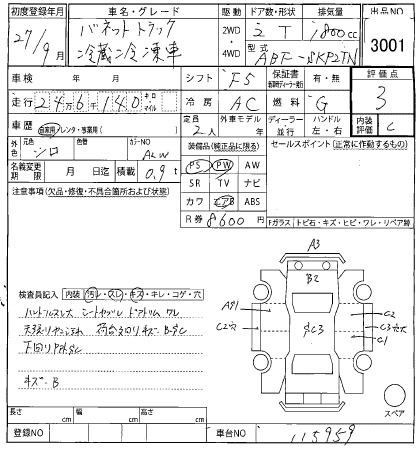 初度登録年月 車名・グレード 駆動 ドア数・形状 排気量 出品NO
27/9月 バネットトラック 冷蔵冷凍車 2WD・4WD 2 T 1800cc 3001
型式 ABF-SKP2TN
車検 年 月 シフト F5 保証書 有・無 評価点
走行 24万6千140 キロ マイル 冷房 AC 燃料 G 3
車歴 自家用・レンタ・事業用( ) 定員 2人 外車モデル 年 ディーラー・並行 ハンドル 左・右 内装評価 C
外色 元色 シロ 色替 カラーNO 装備品(純正品に限る) セールスポイント(正常に作動するもの)
名義変更期限 月 日迄 積載 0.9t PS PW AW
SR TV ナビ
注意事項(欠品・修復・不具合箇所および状態) カワ エアB ABS
R券 8600円
Fガラス トビ石・キズ・ヒビ・ワレ・リペア跡
A3
B2
検査員記入 内装 汚レ・スレ・キズ・キレ・コゲ・穴
ハンドルスレ大 シートヤブレ ドアトリム ワレ
荷台廻りキズ B・S・C
下回りサビ
キズ-B
C2
C1
スペア
長さ cm 幅 cm 高さ cm
登録NO 車台NO 115959